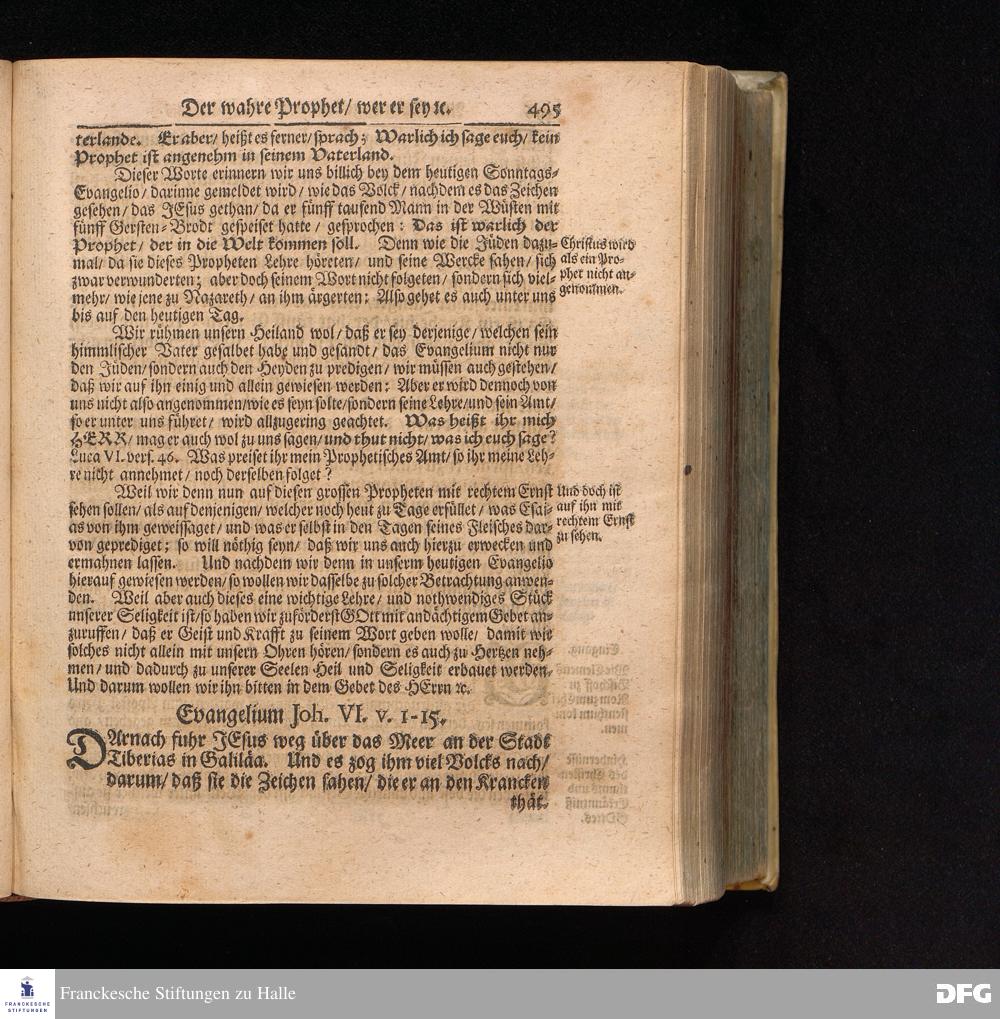 Der wahre Prophet/ wer er sey ꝛc. 495
terlande. Er aber/ heißt es ferner/ sprach; Warlich ich sage euch/ kein
Prophet ist angenehm in seinem Vaterland.
Dieser Worte erinnern wir uns billich bey dem heutigen Sonntags-
Evangelio/ darinne gemeldet wird/ wie das Volck/ nachdem es das Zeichen
gesehen/ das JEsus gethan/ da er fünff tausend Mann in der Wüsten mit
fünff Gersten-Brodt gespeiset hatte/ gesprochen: Das ist warlich der
Prophet/ der in die Welt kommen soll. Denn wie die Jüden dazu-
mal/ da sie dieses Propheten Lehre höreten/ und seine Wercke sahen/ sich
zwar verwunderten; aber doch seinem Wort nicht folgeten/ sondern sich viel-
mehr/ wie jene zu Nazareth/ an ihm ärgerten: Also gehet es auch unter uns
bis auf den heutigen Tag.
Christus wird
als ein Pro-
phet nicht an-
genommen.
Wir rühmen unsern Heiland wol/ daß er sey derjenige/ welchen sein
himmlischer Vater gesalbet habe und gesandt/ das Evangelium nicht nur
den Jüden/ sondern auch den Heyden zu predigen/ wir müssen auch gestehen/
daß wir auf ihn einig und allein gewiesen werden: Aber er wird dennoch von
uns nicht also angenommen/ wie es seyn solte/ sondern seine Lehre/ und sein Amt/
so er unter uns führet/ wird allzugering geachtet. Was heißt ihr mich
HERR/ mag er auch wol zu uns sagen/ und thut nicht/ was ich euch sage?
Luca VI. vers. 46. Was preiset ihr mein Prophetisches Amt/ so ihr meine Leh-
re nicht annehmet/ noch derselben folget?
Weil wir denn nun auf diesen grossen Propheten mit rechtem Ernst
sehen sollen/ als auf denjenigen/ welcher noch heut zu Tage erfüllet/ was Esai-
as von ihm geweissaget/ und was er selbst in den Tagen seines Fleisches dar-
von geprediget; so will nöthig seyn/ daß wir uns auch hierzu erwecken und
ermahnen lassen. Und nachdem wir denn in unserm heutigen Evangelio
hierauf gewiesen werden/ so wollen wir dasselbe zu solcher Betrachtung anwen-
den. Weil aber auch dieses eine wichtige Lehre/ und nothwendiges Stück
unserer Seligkeit ist/ so haben wir zuförderst GOtt mit andächtigem Gebet an-
zuruffen/ daß er Geist und Krafft zu seinem Wort geben wolle/ damit wir
solches nicht allein mit unsern Ohren hören/ sondern es auch zu Hertzen neh-
men/ und dadurch zu unserer Seelen Heil und Seligkeit erbauet werden.
Und darum wollen wir ihn bitten in dem Gebet des HErrn ꝛc.
Und doch ist
auf ihn mit
rechtem Ernst
zu sehen.
Evangelium Joh. VI. v. 1-15.
DArnach fuhr JEsus weg über das Meer an der Stadt
Tiberias in Galiläa. Und es zog ihm viel Volcks nach/
darum/ daß sie die Zeichen sahen/ die er an den Krancken
thät.
FRANCKESCHE
STIFTUNGEN
Franckesche Stiftungen zu Halle
DFG